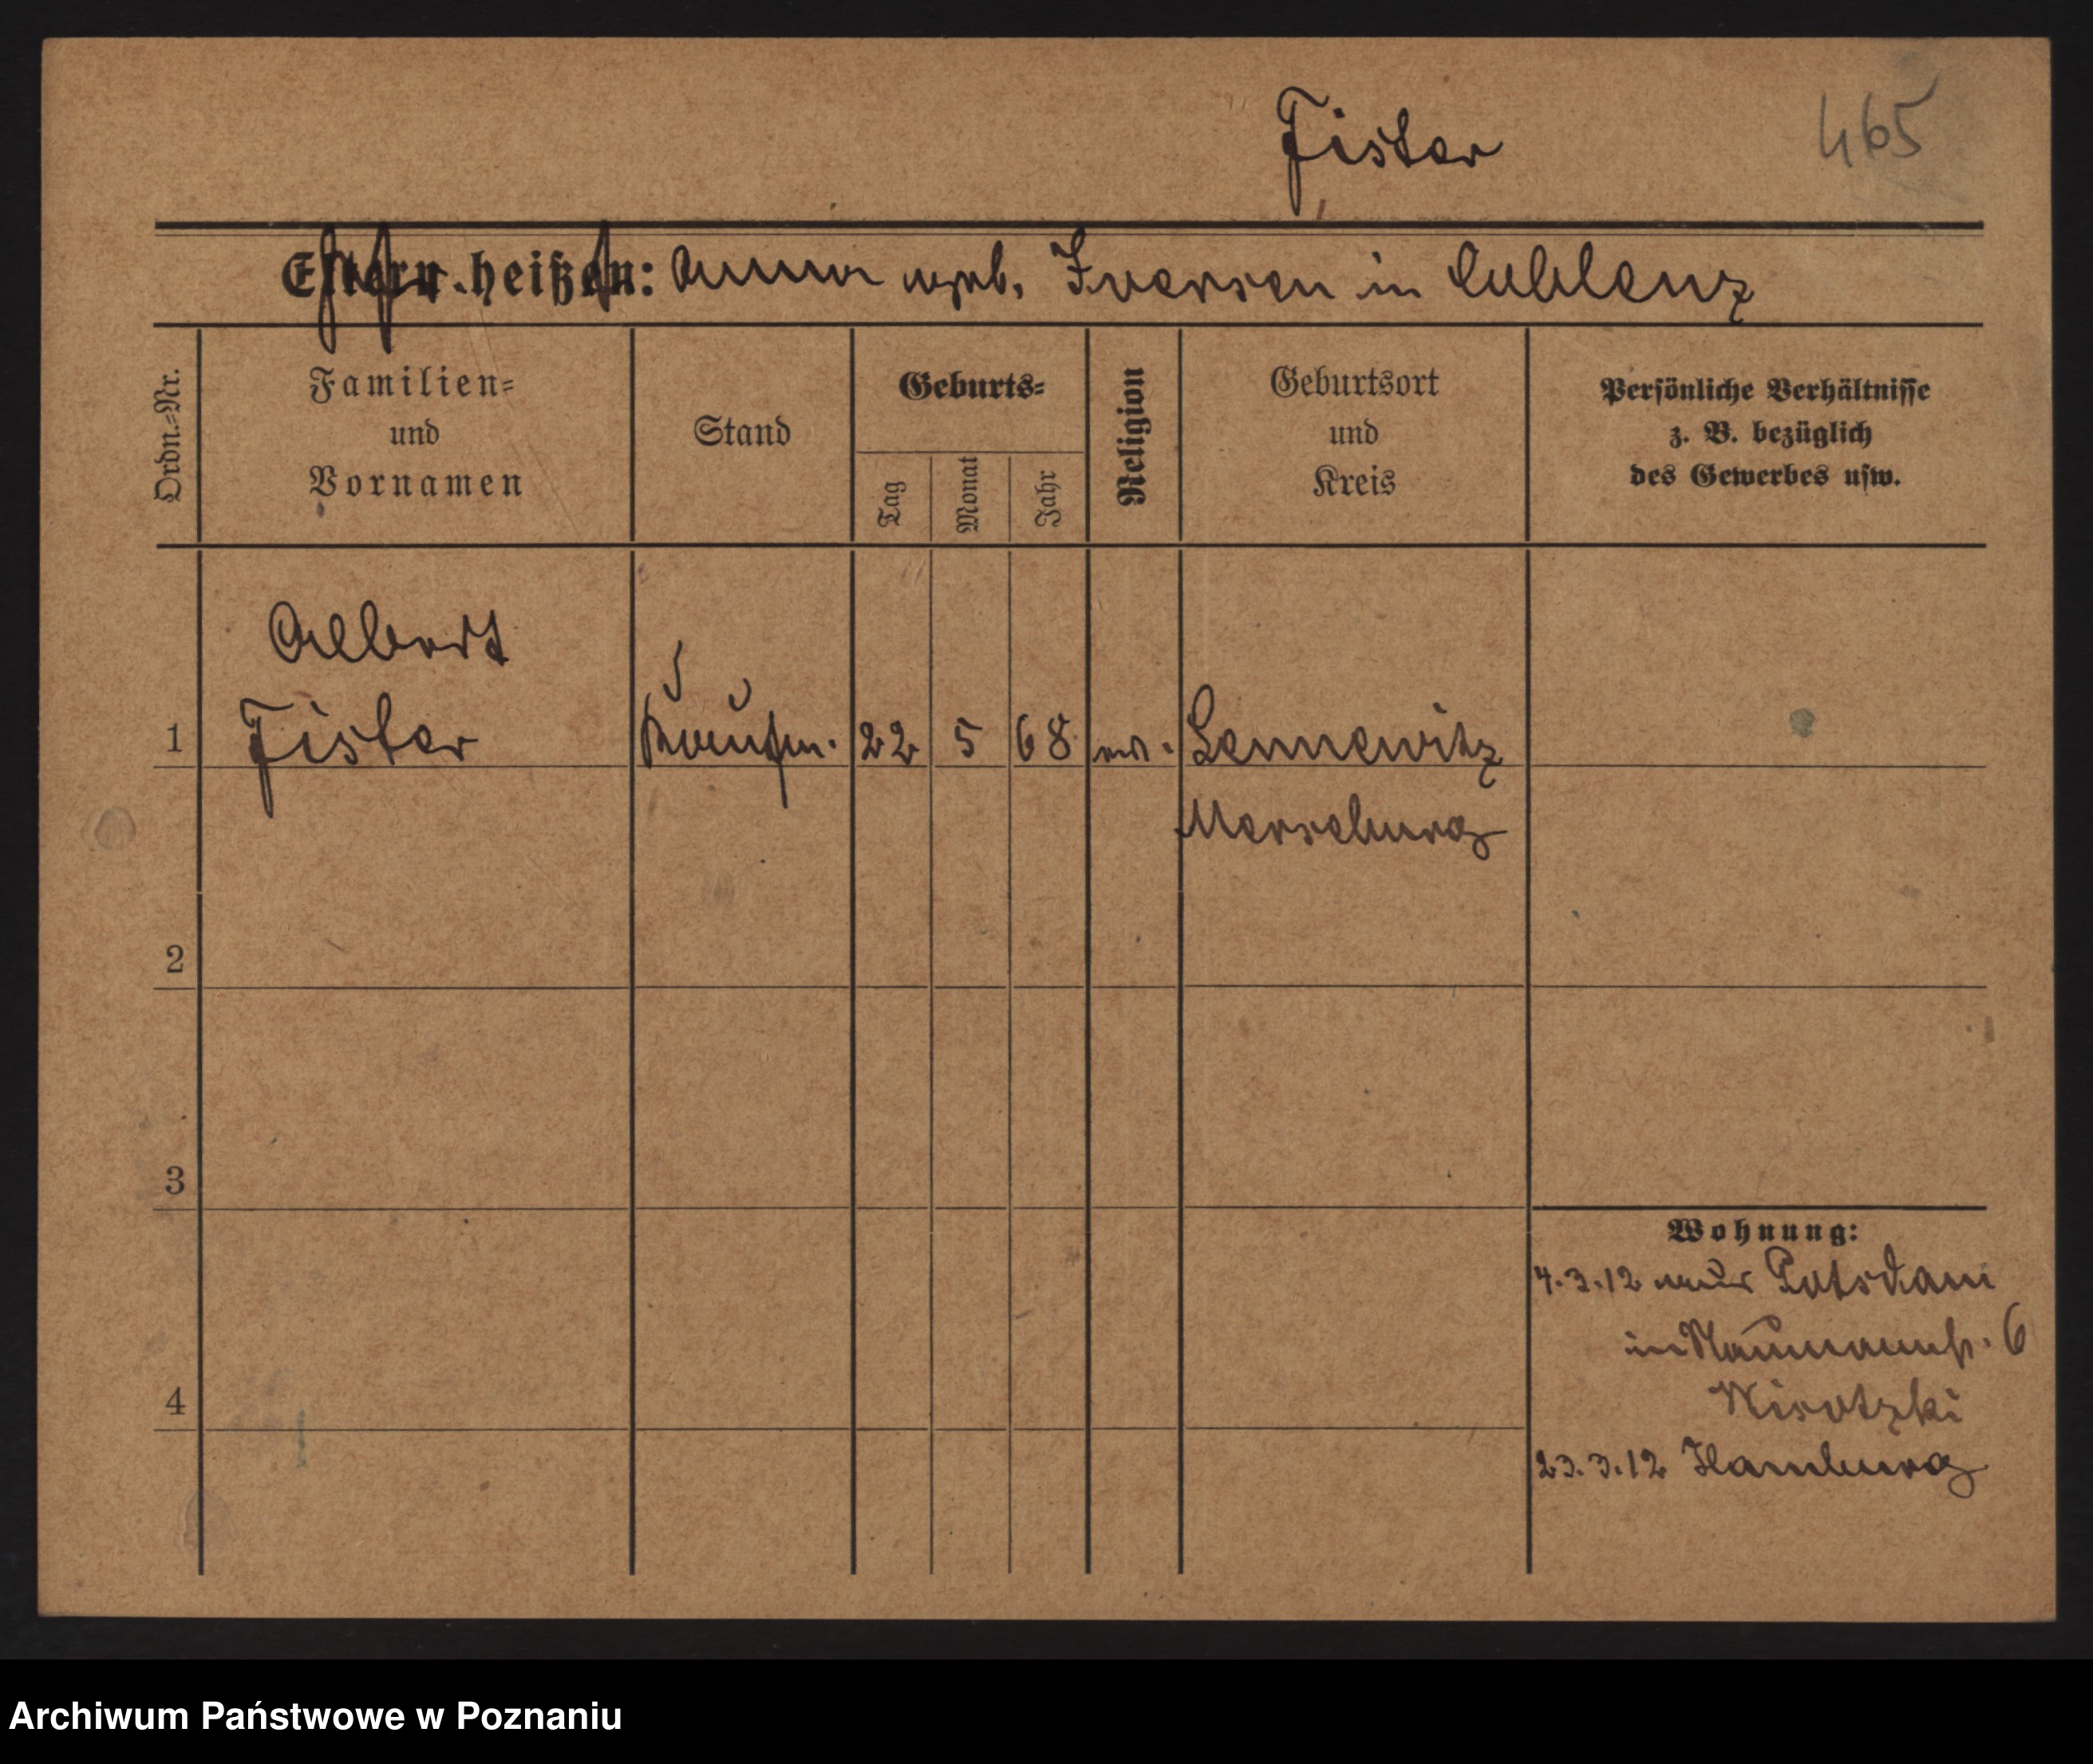 Fister
465
Eltern heißen: Anna geb. Iversen in Coblenz
Ordn.-Nr.
Familien-
und
Vornamen
Stand
Geburts-
Tag
Monat
Jahr
Religion
Geburtsort
und
Kreis
Persönliche Verhältnisse
z. B. bezüglich
des Gewerbes usw.
Albert
1 Fister Kaufm. 22 5 68 ev. Lennewitz
Merseburg
2
3
4
Wohnung:
4.3.12 aus Potsdam
in Naumannstr. 6
Nirotzki
23.3.12 Hamburg
Archiwum Państwowe w Poznaniu